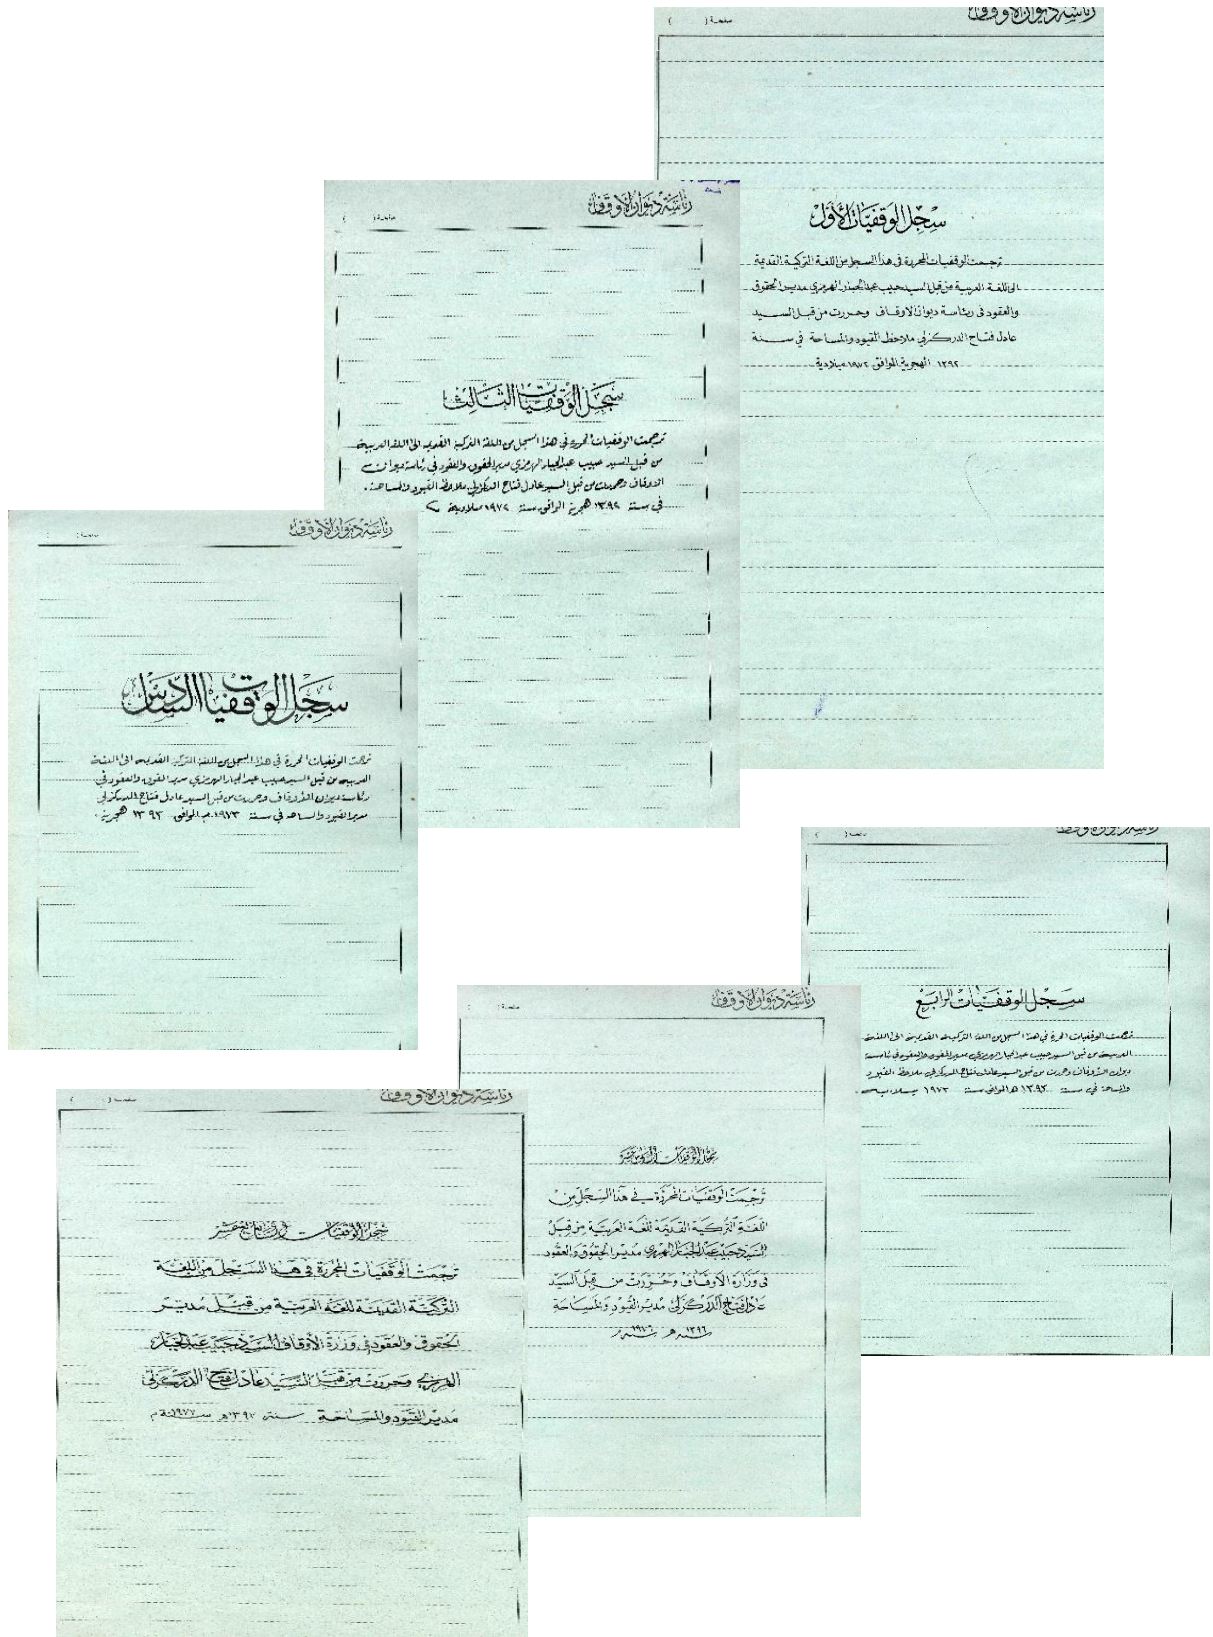 رئاسة ديوان الأوقاف
صفحة ( )
سجل الوقفيات الأول
ترجمت الوقفيات المحررة في هذا السجل من اللغة التركية القديمة
الى اللغة العربية من قبل السيد حبيب عبدالجبار الهرمزي مدير الحقوق
والعقود في رئاسة ديوان الاوقاف وحررت من قبل السيد
عادل فتاح الدركزلي ملاحظ القيود والمساحة في سنة
١٣٩٢ الهجرية الموافق ١٩٧٢ ميلادية
رئاسة ديوان الأوقاف
صفحة ( )
سجل الوقفيات الثالث
ترجمت الوقفيات المحررة في هذا السجل من اللغة التركية القديمه الى اللغة العربية
من قبل السيد حبيب عبدالجبار الهرمزي مدير الحقوق والعقود في رئاسة ديوان
الاوقاف وحررت من قبل السيد عادل فتاح الدركزلي ملاحظ القيود والمساحة .
في سنة ١٣٩٢ هجرية الموافق سنة ١٩٧٢ ميلادية
رئاسة ديوان الأوقاف
صفحة (
سجل الوقفيات السادس
ترجمت الوقفيات المحررة في هذا السجل من اللغة التركية القديمه الى اللغة
العربيه من قبل السيد حبيب عبد الجبار الهرمزي مدير الحقوق والعقود في
رئاسة ديوان الأوقاف وحررت من قبل السيد عادل فتاح الدركزلي
مدير القيود والمساحه في سنة ١٩٧٣ م الموافق ١٣٩٣ هجرية .
رئاسة ديوان الأوقاف
صفحة ( )
سجل الوقفيات الرابع
ترجمت الوقفيات المحررة في هذا السجل من اللغة التركية القديمة الى اللغة
العربية من قبل السيد حبيب عبد الجبار الهرمزي مدير الحقوق والعقود في رئاسة
ديوان الأوقاف وحررت من قبل السيد عادل فتاح الدركزلي ملاحظ القيود
والمساحة في سنة ١٣٩٣ هـ الموافق سنة ١٩٧٣ ميلاديه
رئاسة ديوان الأوقاف
صفحة (
سجل الوقفيات
ترجمت الوقفيات المحررة في هذا السجل من
اللغة التركية القديمة للغة العربية من قبل
السيد حبيب عبد الجبار الهرمزي مدير الحقوق والعقود
في وزارة الاوقاف وحررت من قبل السيد
عادل فتاح الدركزلي مدير القيود والمساحة
سنة ١٣٩٦ هـ سنة ١٩٧٦ م
رئاسة ديوان الأوقاف
صفحة ( )
سجل الوقفيات عشر
ترجمت الوقفيات المحررة في هذا السجل من اللغة
التركية القديمة للغة العربية من قبل مدير
الحقوق والعقود في وزارة الأوقاف السيد حبيب عبد الجبار
الهرمزي وحررت من قبل السيد عادل فتاح الدركزلي
مدير القيود والمساحة سنة ١٣٩٧ هـ سنة ١٩٧٧ م